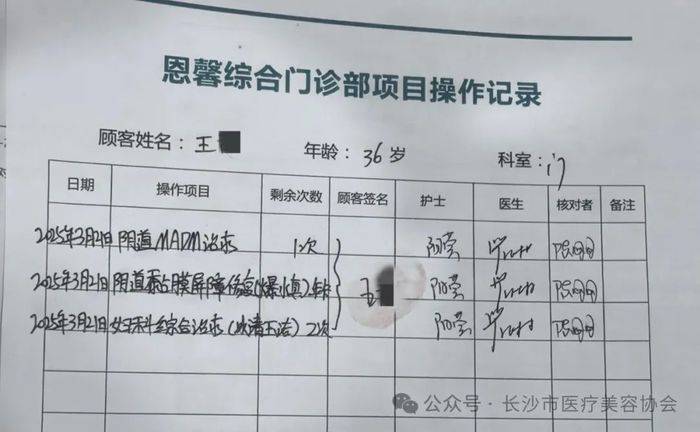 恩馨综合门诊部项目操作记录
顾客姓名：王 年龄：36岁 科室：门
日期 操作项目 剩余次数 顾客签名 护士 医生 核对者 备注
2025年3月21日 阴道MADM治疗 1次
2025年3月21日 阴道黏膜屏障修复(爆填)年卡 王
2025年3月21日 妇科综合治疗(以清下法) 2次
公众号·长沙市医疗美容协会